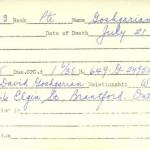 3 Rank Pte Name Goshgarian
Date of Death July 21
Due. CPC. $ No 649-G-2495
David Goshgarian Relationship
Elgin St. Brantford, Ont